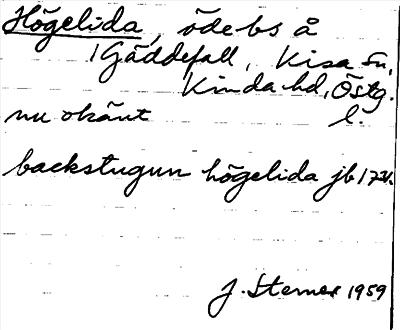 Högelida, ödebs å
1 Gäddefall, Kisa sn,
Kinda hd, Östg.
nu okänt l.
backstugun högelida jb
J. Sterner 1959